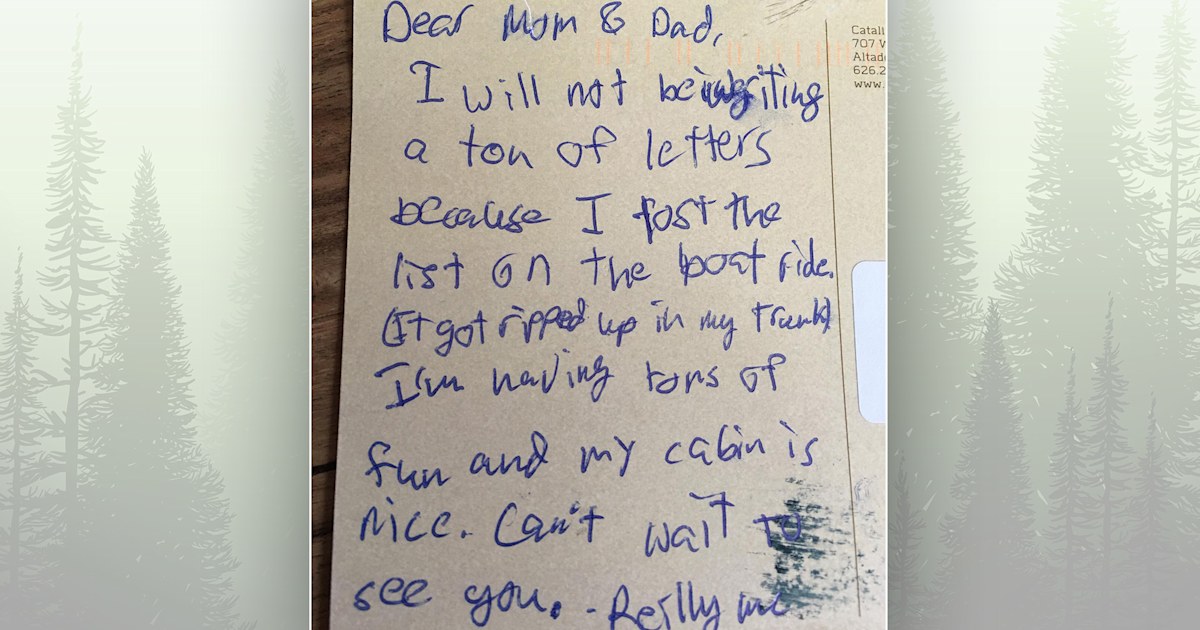 Dear Mom & Dad,
I will not be writing
a ton of letters
because I lost the
list on the boat ride.
(It got ripped up in my trunk)
I'm having tons of
fun and my cabin is
nice. Can't wait to
see you. - Reilly
Catali
707 W
Altad
626.2
www.